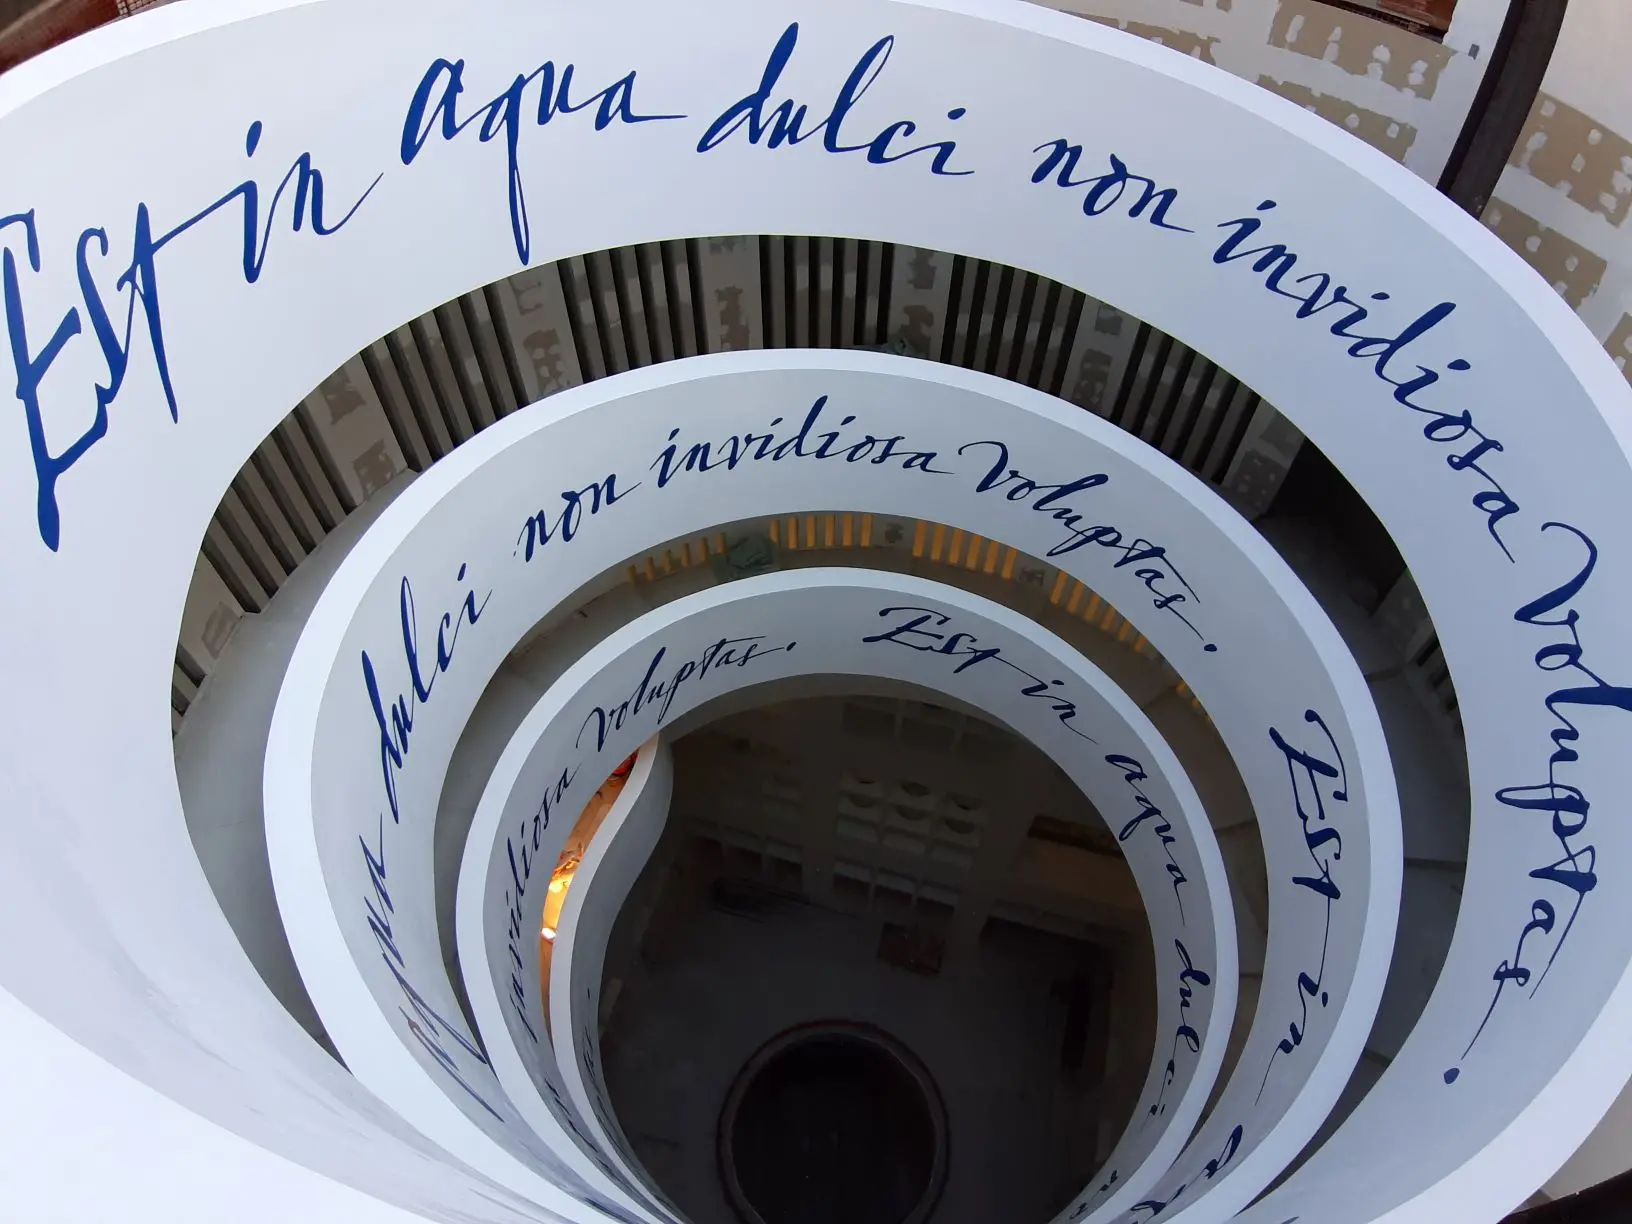 Est in aqua dulci non invidiosa voluptas.
aqua dulci non invidiosa voluptas. Est in
invidiosa voluptas. Est in aqua dulci